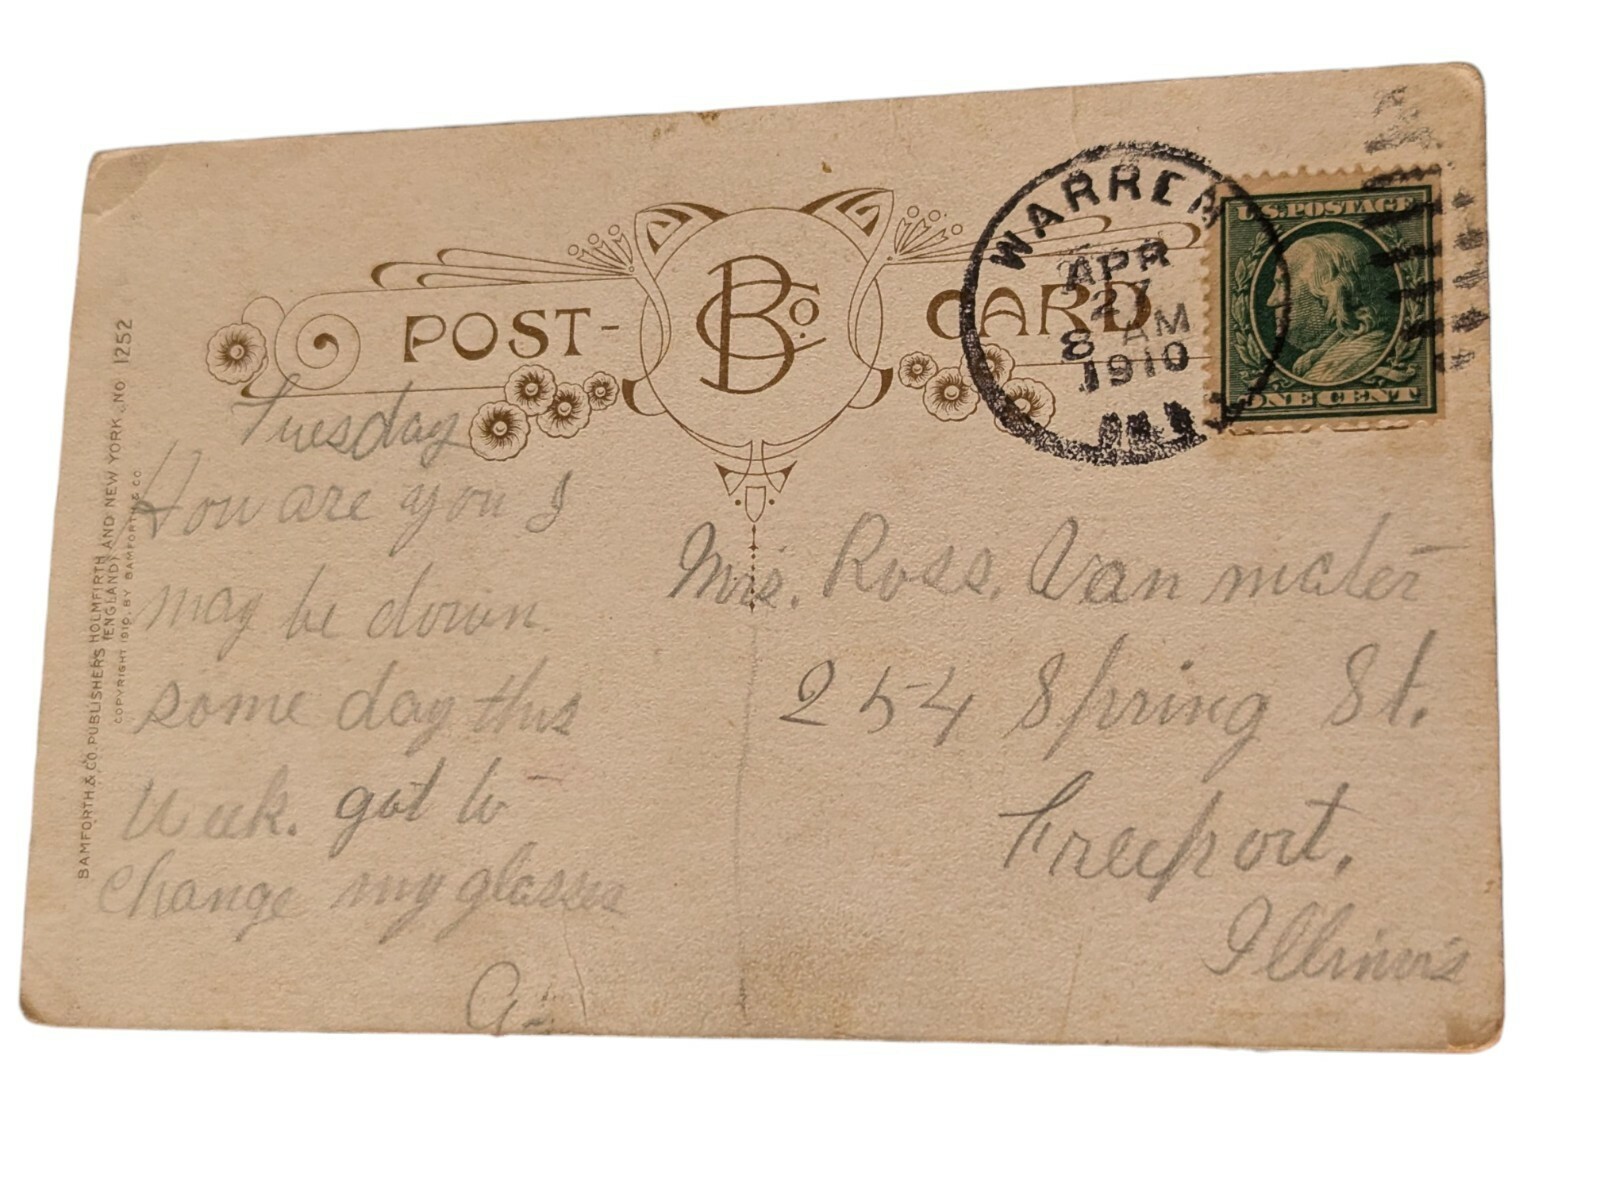 POST- BCo. CARD
WARREN
APR
27
8 AM
1910
ILL.
U.S. POSTAGE
ONE CENT
BAMFORTH & CO. PUBLISHERS HOLMFIRTH (ENGLAND) AND NEW YORK. NO 1252
COPYRIGHT 1910. BY BAMFORTH & CO.
Tuesday
How are you I
may be down
some day this
week. got to
change my glasses
Mrs. Ross. Van mater
254 Spring St.
Freeport.
Illinois